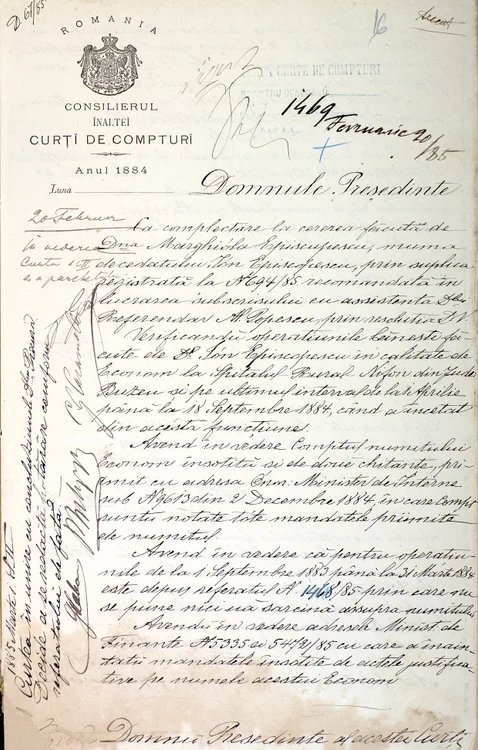 D. 61/85
16
ROMANIA
CONSILIERUL
ÎNALTEI
CURŢI DE COMPTURI
Anul 1884
Luna
CURTE DE COMPTURI
1469
Februarie 20/85
Domnule Preşedinte
20 Februar
în vedere
Curtei
Ca complectare la cererea făcută de
Dna Marghióla Episcupescu, muma
decedatului Ión Episcopescu, prin suplica
registrata la No 694/85 recomandată în
lucrarea subscrisului cu assistenta Dlui
Referendar Al. Popescu, prin resolutia
Verificându operatiunile bănesti fă-
cute de Dl Ión Episcopescu in calitate de
Econom la Spitalul Rural Nifon din Jud.
Buzeu si pe ultimul interval de la 1 Aprilie
până la 18 Septembre 1884, când a incetat
din acésta functiune.
Avend în vedere Comptul numitului
Econom insotitu si de doue chitante, pri-
emit cu adresa Onor. Minister de Interne
sub No 9613 din 2 Decembre 1884, in care Compt
suntu notate tóte mandatele priimite
de numitul.
Avend în vedere că pentru operatiu-
nile de la 1 Septembre 1883 până la 31 Marte 1884
este depus referatul No 1468/85 prin care nu
se pune nici ua sarcină assupra numitului
Avendu în vedere adresele Minist. de
Finante No 5335 si 5472/85 cu care a înain-
tatu mandatele însotite de actele justifica-
tive pe numele acestui Econom
Domnu Presedinte al acestei Curti
1885 Marte
Curtea în unire cu conclusiunile Dlui Procuror
Decide a se redacta hotărâre conform
referatului de fată